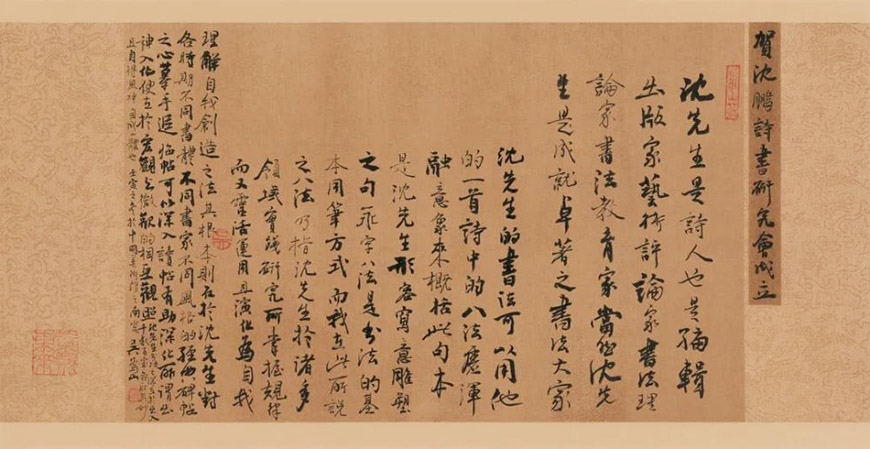 賀沈鵬詩書研究會成立
沈先生是詩人也是編輯
出版家藝術評論家書法理
論家書法教育家當然沈先
生是成就卓著之書法大家
沈先生的書法可以用他
的一首詩中的八法塵渾
融意象來概括此句本
是沈先生形容寫意雕塑
之句永字八法是書法的基
本用筆方式而我在此所說
之八法乃指沈先生於諸多
領域實踐研究所掌握規律
而又靈活運用且演化為自我
理解自我創造之法其根本則在於沈先生對
各時期不同書體不同書家不同風格的經典碑帖
之心摹手追臨帖可以深入讀帖有助深化所謂出
神入化便在於宏觀与微觀的相互觀照